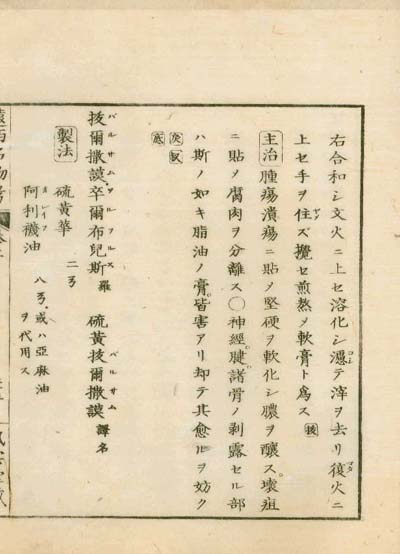 右合和シ文火ニ上セ溶化シ濾テ滓ヲ去リ復火ニ
上セ手ヲ住ズ攪セ煎熬ノ軟膏ト為ス
主治 腫瘍潰瘍ニ貼ノ堅硬ヲ軟化シ膿ヲ釀ス。壞疽
ニ貼ノ腐肉ヲ分離ス〇神經。腱。諸骨ノ剥露セル部
ハ斯ノ如キ脂油ノ膏。皆害アリ却テ其愈ルヲ妨ク
抜爾撒謨辛爾布兒斯 羅 硫黄抜爾撒謨 譯名
バルサムヲルフルス バルサム
製法
硫黄華 二ヲ
阿利襪油 八ヲ。或ハ亞麻油ヲ代用ス
オレイフ